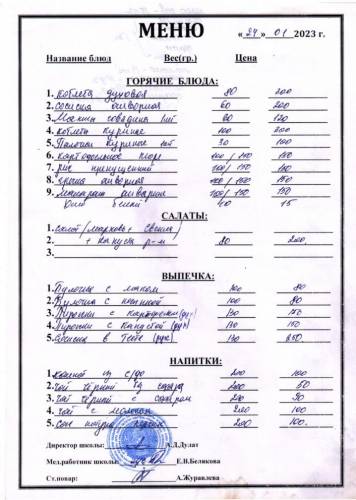 МЕНЮ
«24» 01 2023 г.
Название блюд Вес(гр.) Цена
ГОРЯЧИЕ БЛЮДА:
1. котлета духовая 80 200
2. сосиска отворная 60 200
3. говядина 80 120
4. котлета куриная 100 200
5. куриное 30 100
6. картофельное пюре 100/150 150
7. рис припущенный 100/150 150
8. гречка отворная 100/150 150
9. макароны отварные 100/150 150
Хлеб белый 40 15
САЛАТЫ:
1. салат (морковь + свекла)
2. + капуста р-м 80 200
3.
ВЫПЕЧКА:
1. Булочка с маком 100 80
2. Булочка с 100 80
3. Пирожки с картошкой (дух) 130 150
4. Пирожки с капустой (дух) 130 150
5. Сосиска в тесте (дух) 130 250
НАПИТКИ:
1. компот из с/ф 200 100
2. чай черный 200 50
3. чай черный с сахаром 200 50
4. чай с молоком 200 100
5. сок 200 100.
Директор школы: А.Д.Дулат
Мед.работник школы: Е.В.Беликова
Ст.повар: А.Журавлева